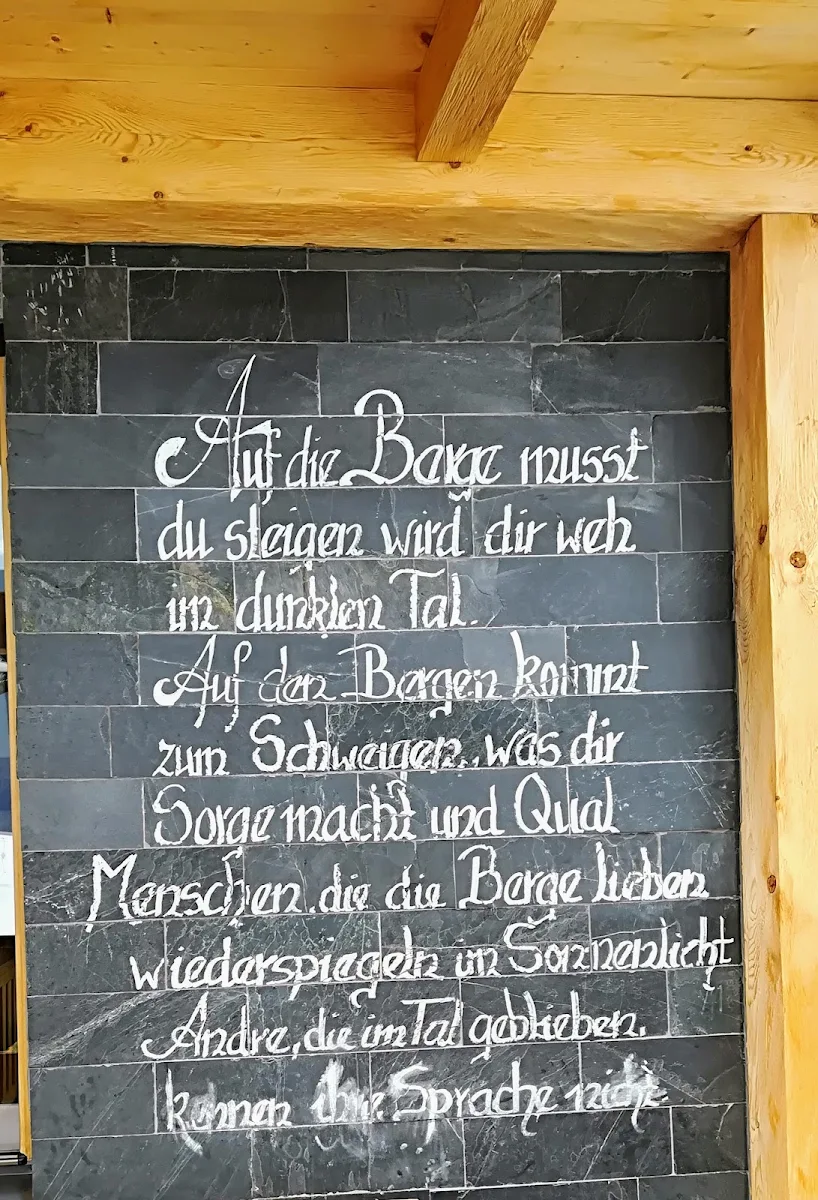 Auf die Berge musst
du steigen wird dir weh
im dunklen Tal.
Auf den Bergen kommt
zum Schweigen, was dir
Sorge macht und Qual
Menschen, die die Berge lieben
wiederspiegeln im Sonnenlicht
Andre, die im Tal geblieben,
kennen ihre Sprache nicht.